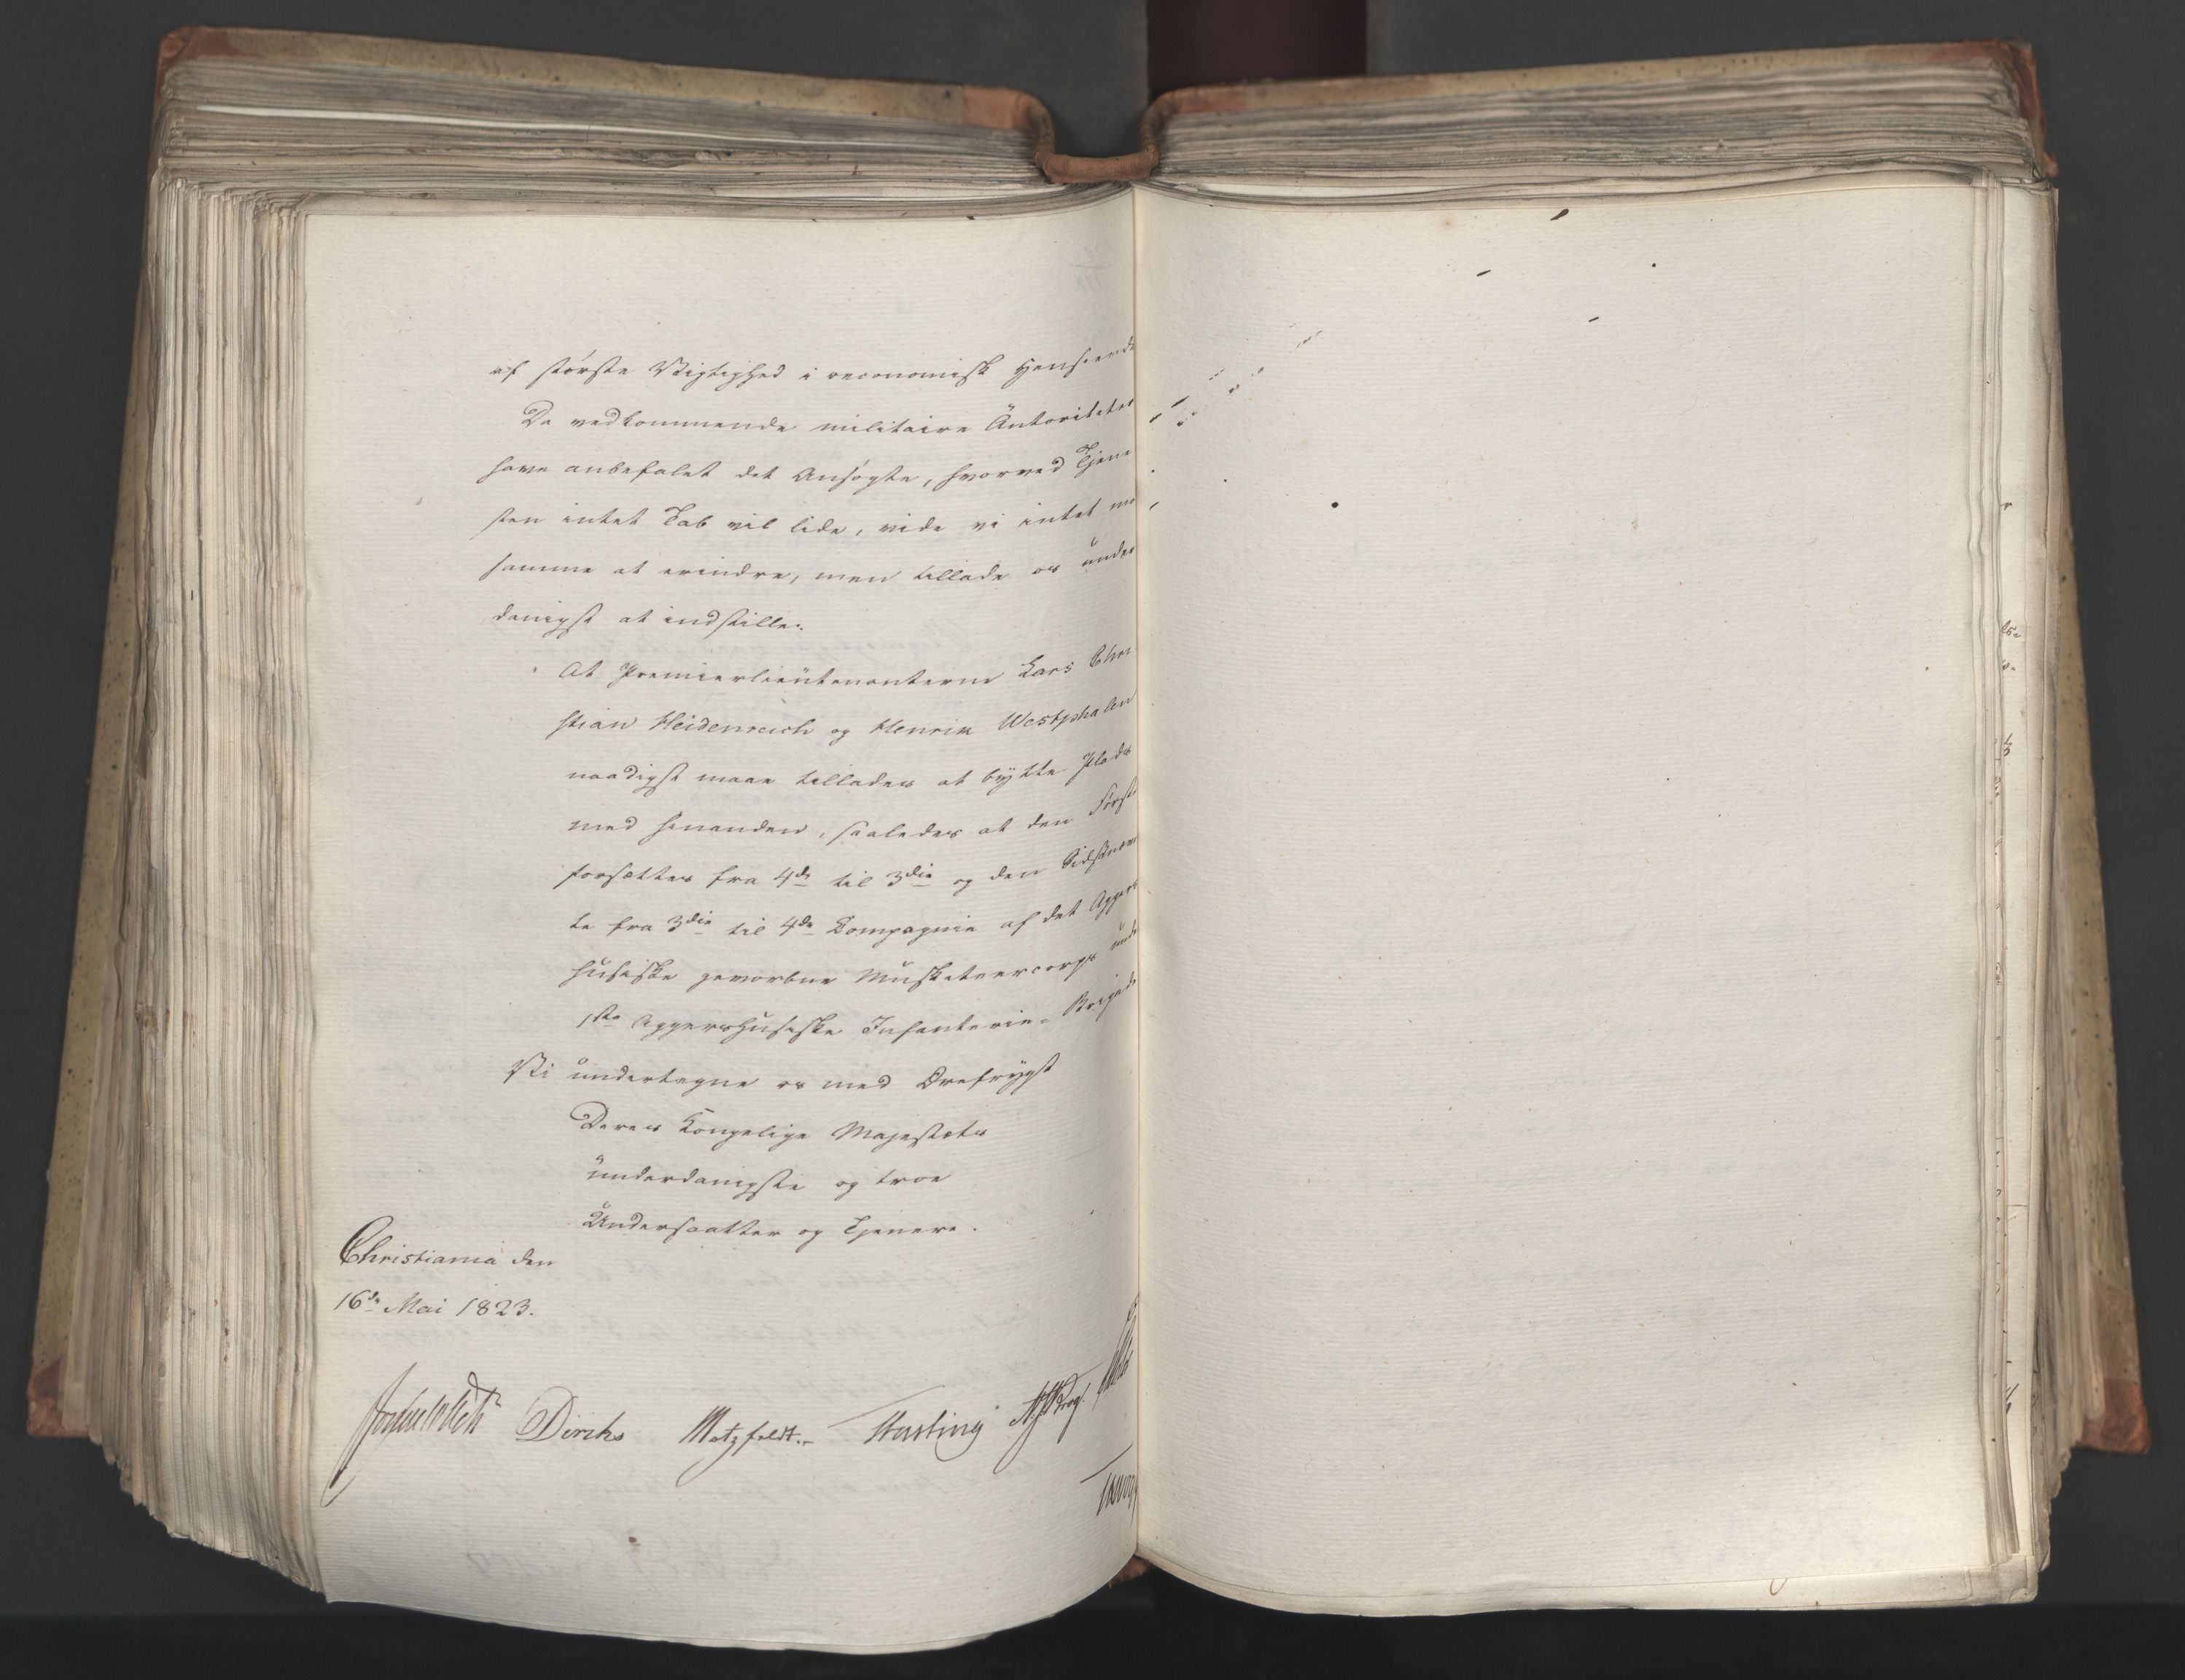 af største Vigtighed i oeconomisk Henseende
Da vedkommende militaire Autoriteter
have anbefalet det Ansøgte, hvorved Tjene
sten intet Tab vil lide, vide vi intet mo
samme at erindre, men tillade os under
danigst at indstille:
At Premierlieutenanterne Lars Chri
stian Heidenreich og Henrik Westphalen
naadigst maae tillades at bytte Plads
med hinanden, saaledes at den Første
forsættes fra 4de til 3die og den Sidstnævn
te fra 3die til 4de Compagnie af det Agger
husiske gevorbne Musketeercorps under
1ste Aggershusiske Infanterie-Brigade
Vi undertegne os med Ærefrygt
Deres Kongelige Majestæts
underdanigste og troe
Undersaatter og Tjenere.
Christiania den
16de Mai 1823.
Diriks Motzfeldt Hasting